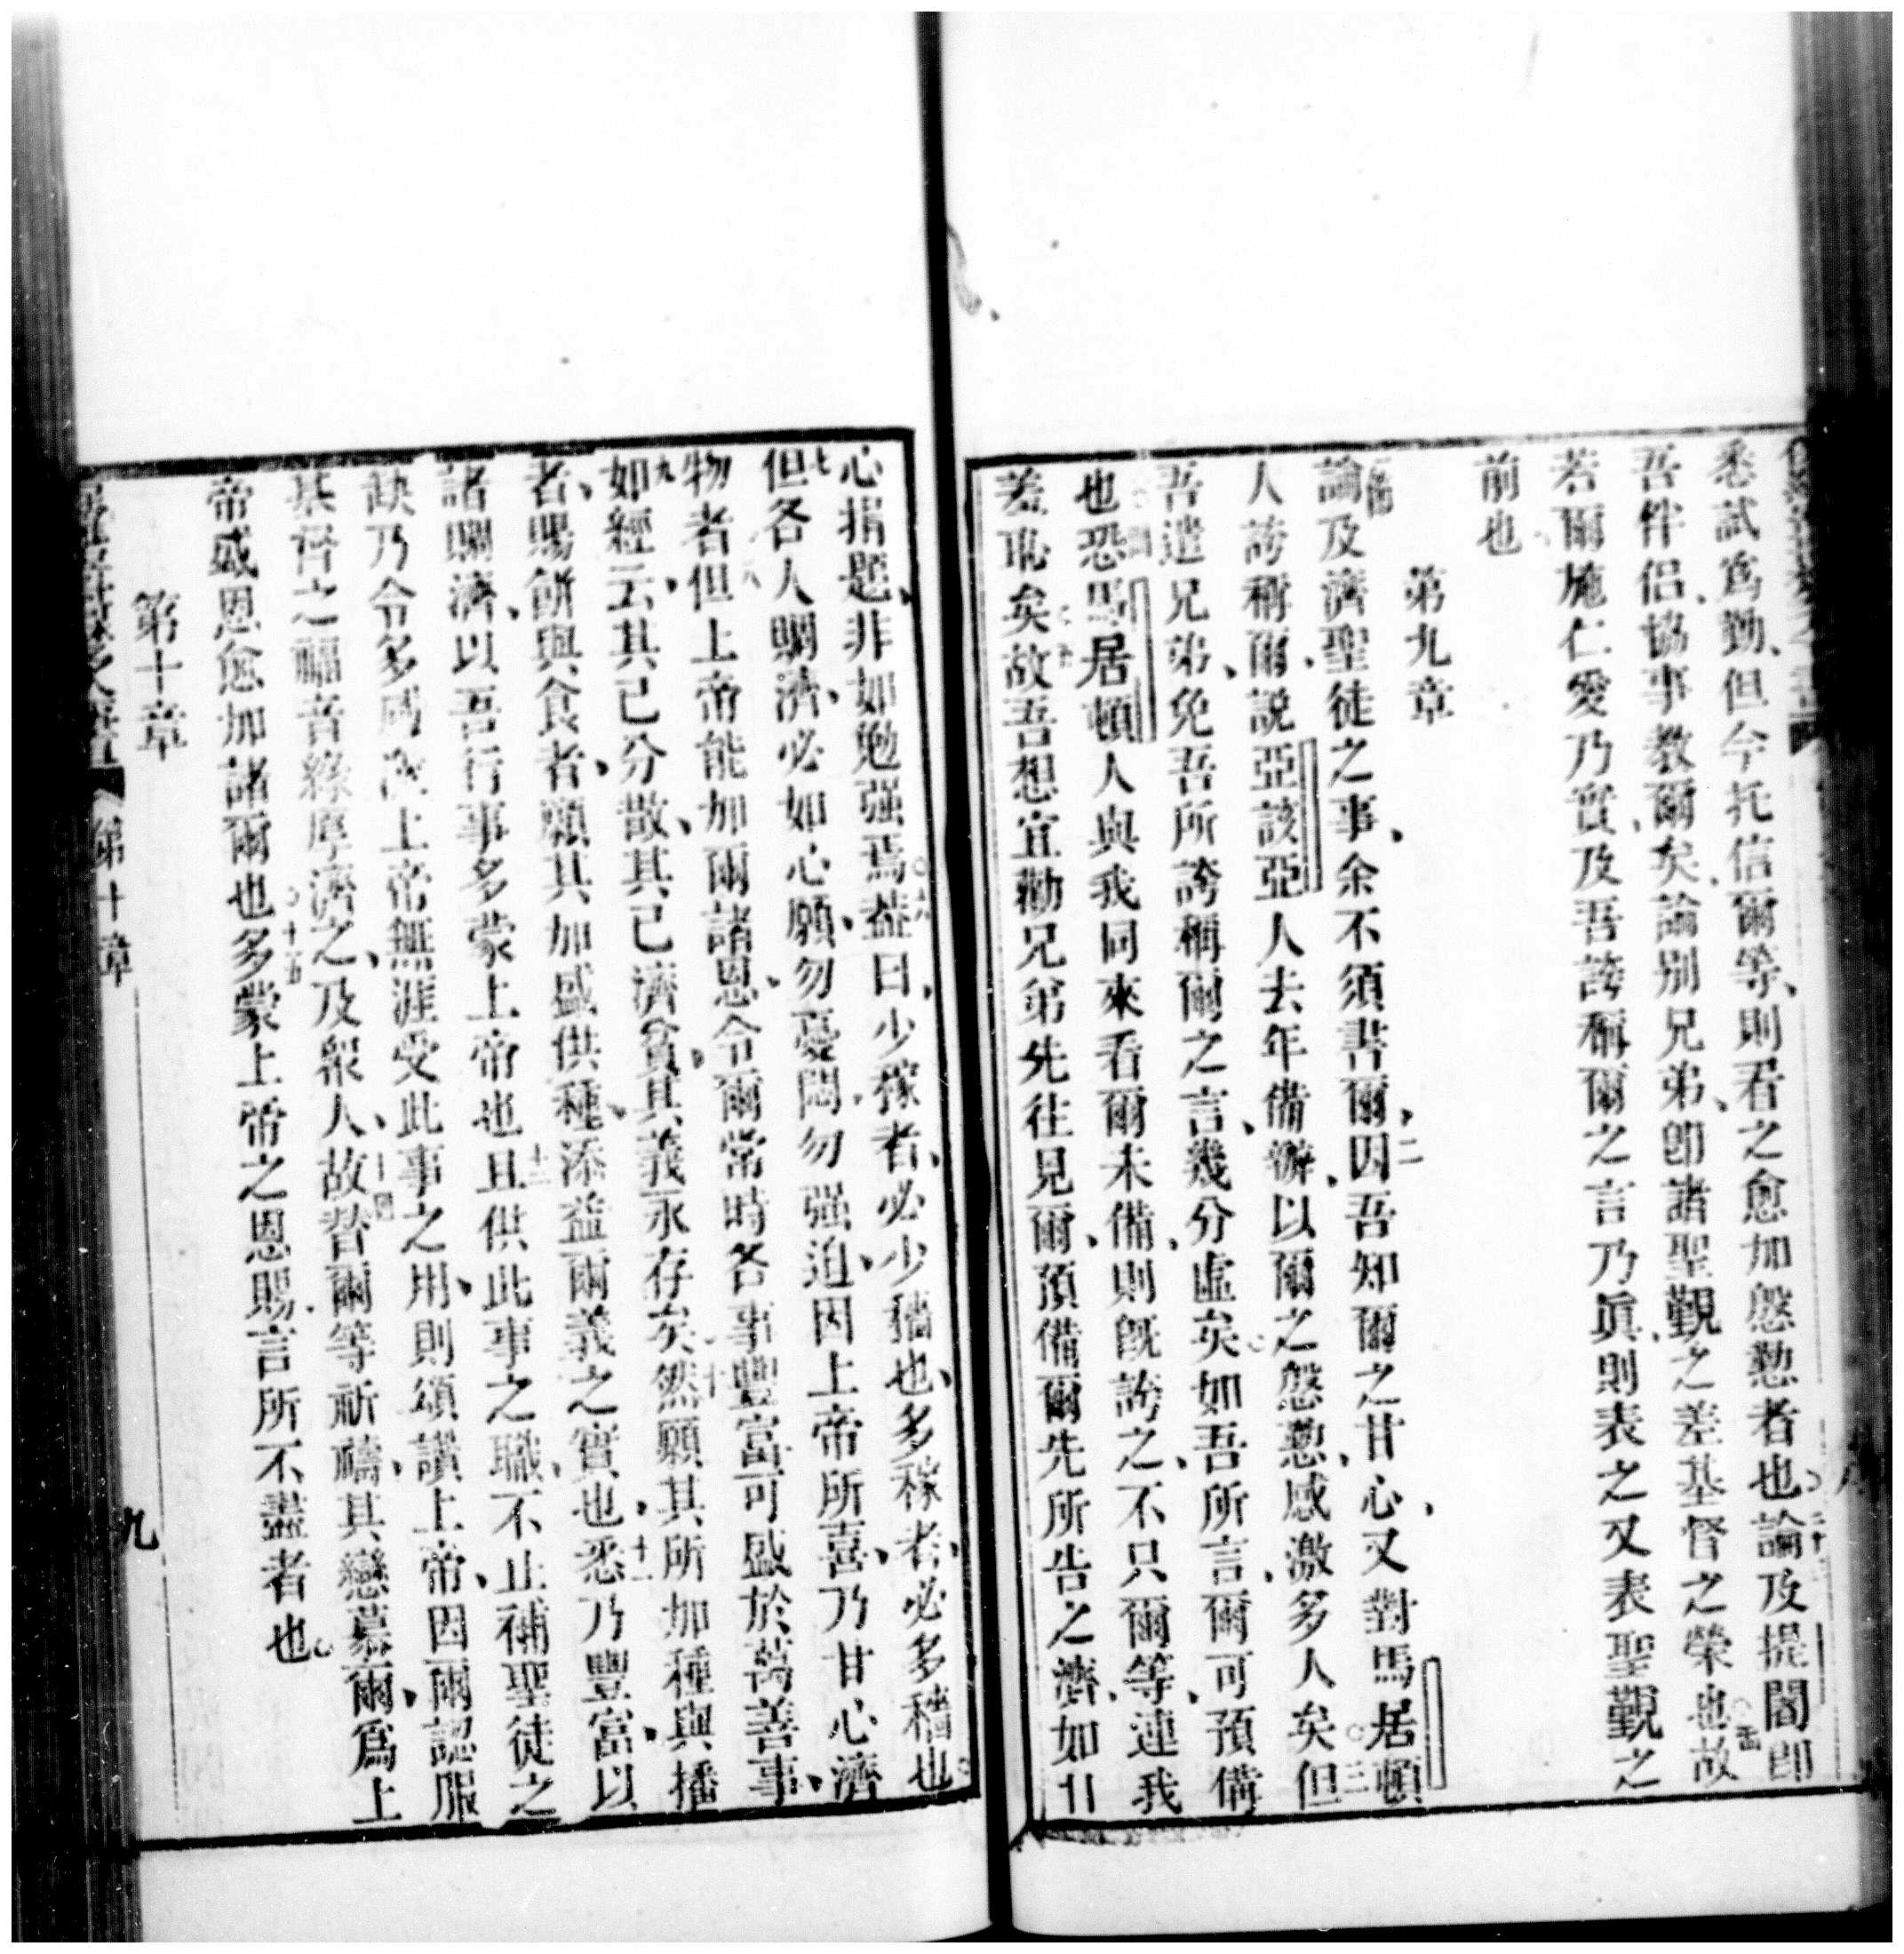 悉試爲勤、但今托信爾等、則看之愈加慇懃者也論及提閣卽
吾伴侶、協事教爾矣、論別兄弟、卽諸聖覲之差基督之榮也故
若爾施仁愛乃實、及吾誇稱爾之言乃眞、則表之又表聖覲之
前也
第九章
論及濟聖徒之事、余不須書爾、二因吾知爾之甘心、又對馬居頓
人誇稱爾、說亞該亞人去年備辦、以爾之慇懃、感激多人矣三但
吾遣兄弟、免吾所誇稱爾之言、幾分虛矣如吾所言、爾可預備
也四恐馬居頓人與我同來看爾未備、則旣誇之、不只爾等、連我
羞恥矣五故吾想宜勸兄弟先往見爾、預備爾先所告之濟、如甘
心捐題、非如勉强焉六蓋曰、少稼者、必少穡也、多稼者、必多穡也
七但各人賙濟、必如心願、勿憂悶、勿强迫、因上帝所喜、乃甘心濟
物者八但上帝能加爾諸恩、令爾常時各事豐富可盛於萬善事、
九如經云、其已分散、其已濟貧、其義永存矣十然願其所加種與播
者、賜餅與食者、願其加盛供種、添益爾義之實也、十一悉乃豐富、以
諸賙濟、以吾行事多蒙上帝也十二且供此事之職、不止補聖徒之
缺乃令多感激上帝無涯十三受此事之用、則頌讃上帝、因爾認服
基督之福音緣厚濟之、及衆人、十四故替爾等祈禱、其戀慕爾、爲上
帝盛恩愈加諸爾也十五多蒙上帝之恩賜、言所不盡者也
第十章
第十章
九